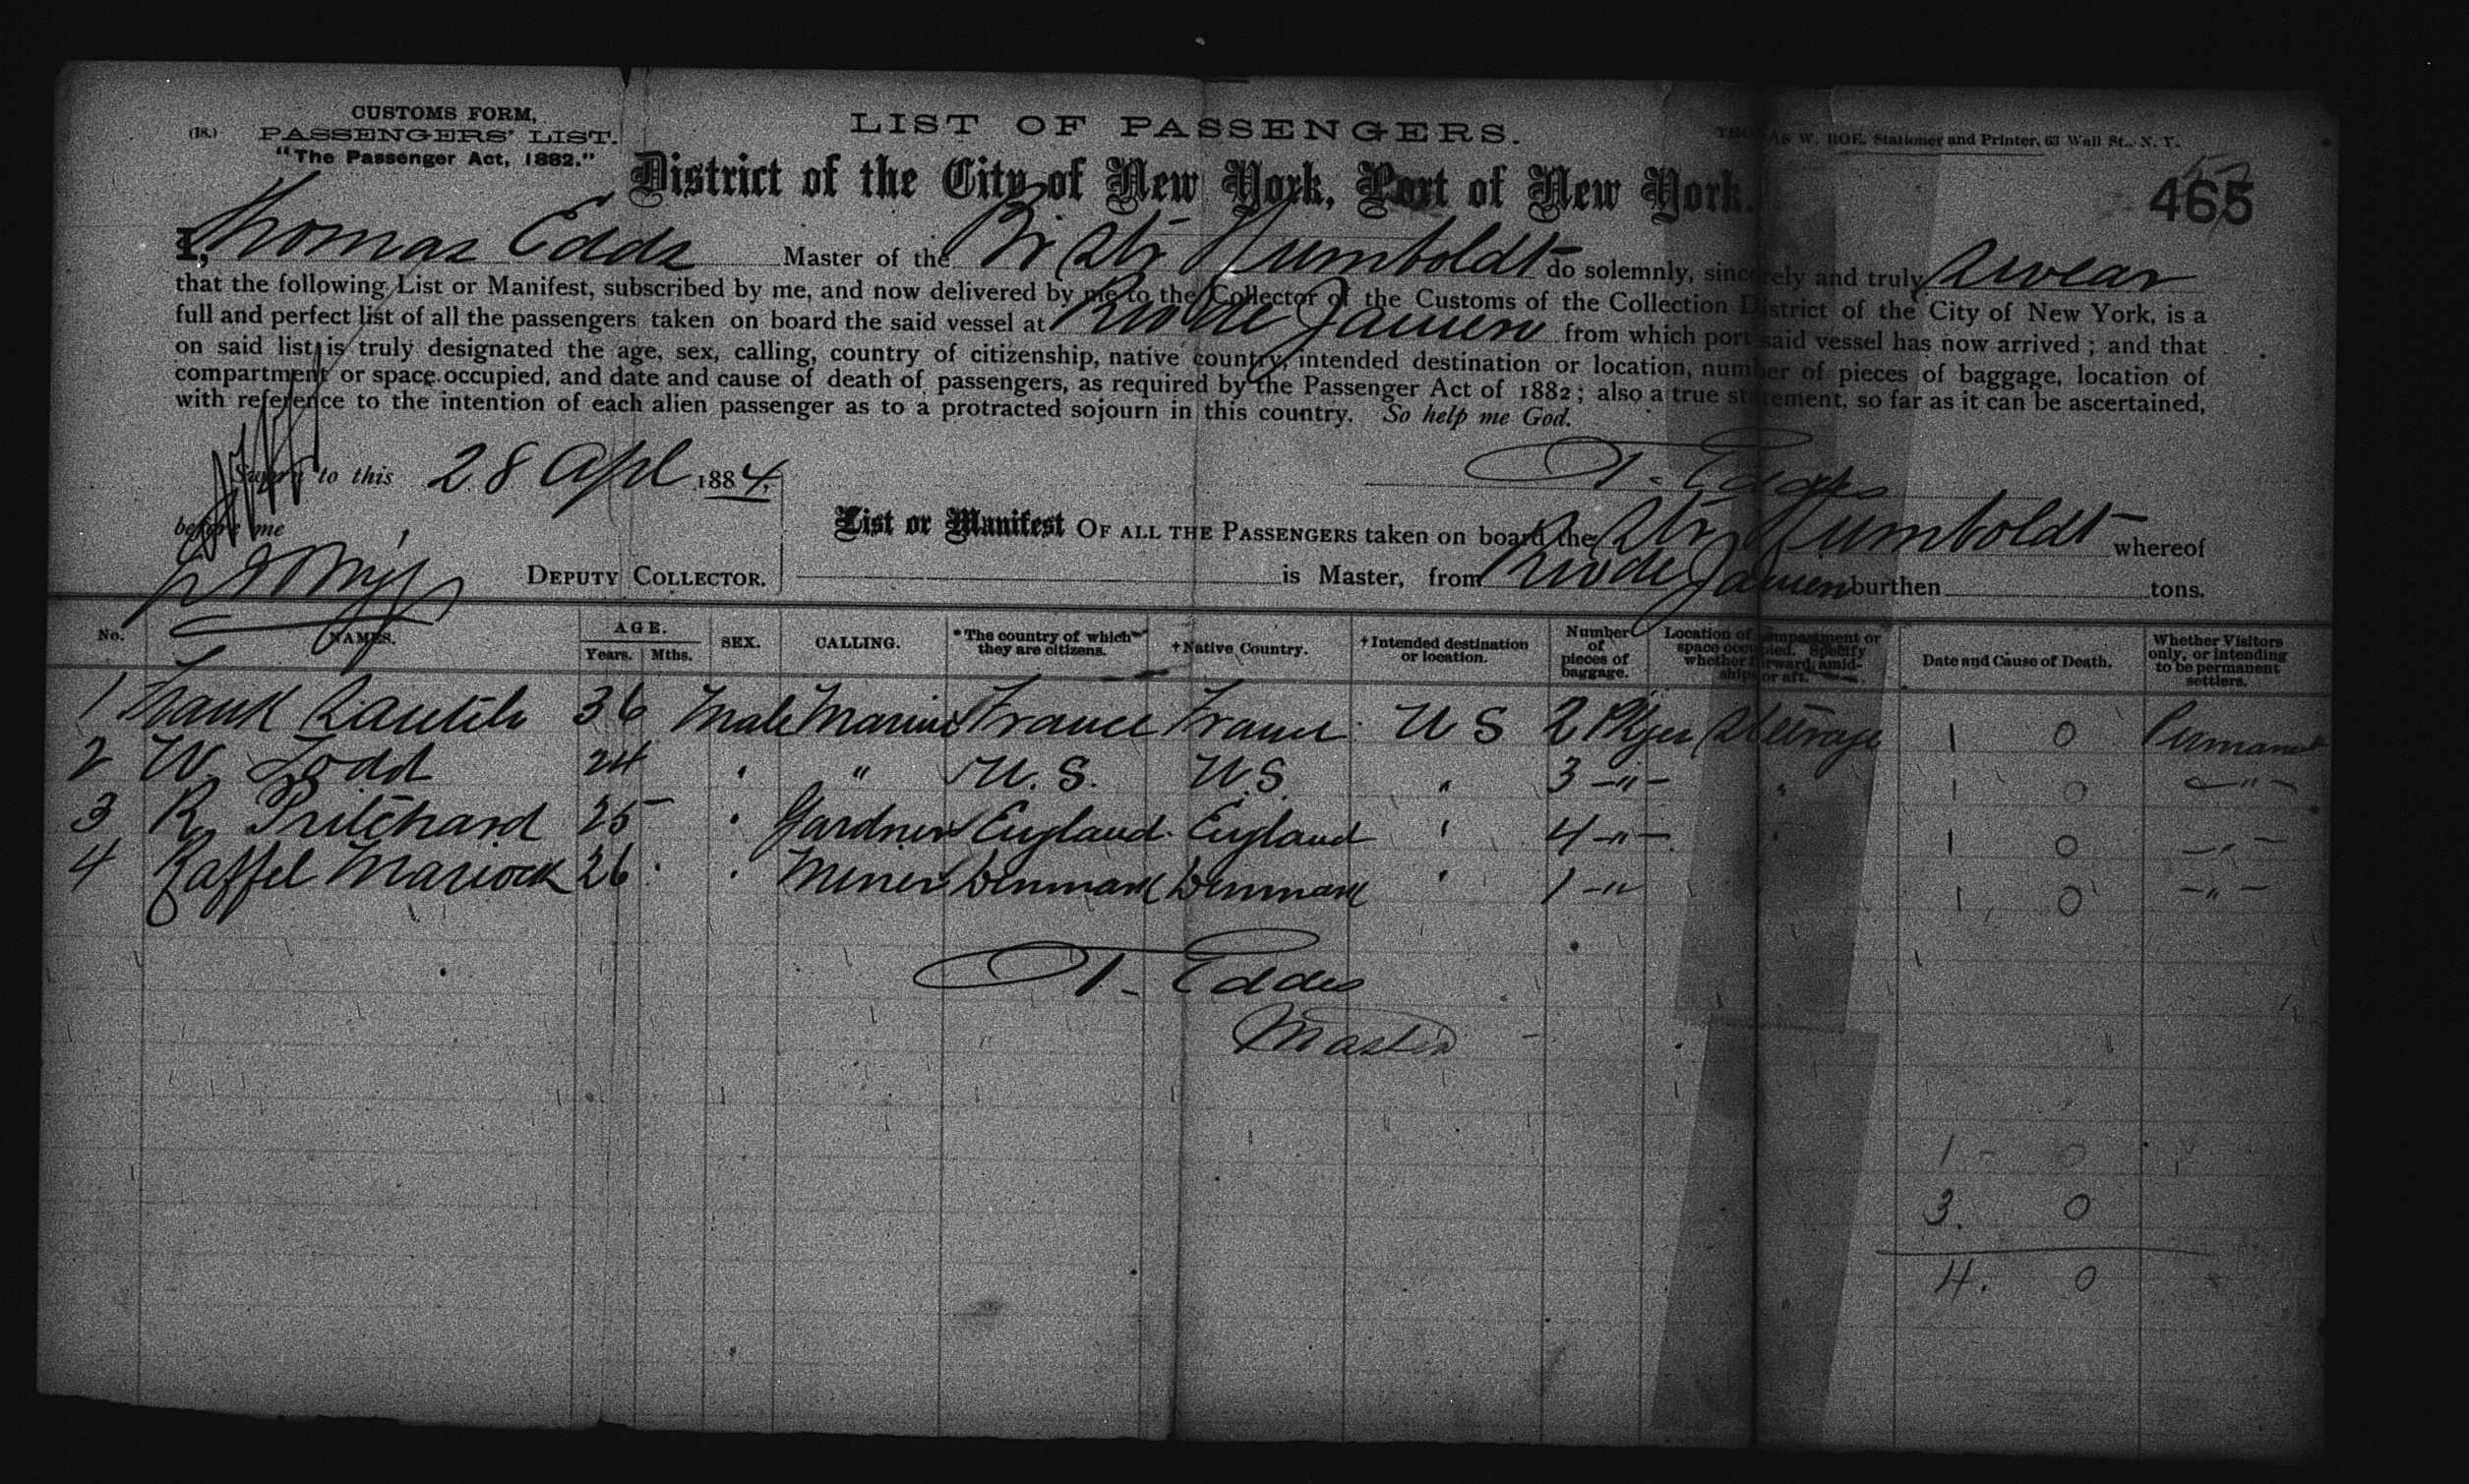 CUSTOMS FORM,
(18.) PASSENGERS' LIST.
"The Passenger Act, 1882."
LIST OF PASSENGERS.
THOMAS W. ROE, Stationer and Printer, 63 Wall St., N. Y.
District of the City of New York, Port of New York.
465
I, Thomas Edds Master of the Br Str Humboldt do solemnly, sincerely and truly swear
that the following List or Manifest, subscribed by me, and now delivered by me to the Collector of the Customs of the Collection District of the City of New York, is a
full and perfect list of all the passengers taken on board the said vessel at Rio de Janiero from which port said vessel has now arrived; and that
on said list is truly designated the age, sex, calling, country of citizenship, native country, intended destination or location, number of pieces of baggage, location of
compartment or space occupied, and date and cause of death of passengers, as required by the Passenger Act of 1882; also a true statement, so far as it can be ascertained,
with reference to the intention of each alien passenger as to a protracted sojourn in this country. So help me God.
Sworn to this 28 Apl 1884.
T. Eddes
before me
List or Manifest OF ALL THE PASSENGERS taken on board the Str Humboldt whereof
DEPUTY COLLECTOR. is Master, from Rio de Janiero burthen tons.
No. NAMES. AGE. Years. Mths. SEX. CALLING. *The country of which they are citizens. †Native Country. †Intended destination or location. Number of pieces of baggage. Location of compartment or space occupied. Specify whether forward, amidships or aft. Date and Cause of Death. Whether Visitors only, or intending to be permanent settlers.
1 36 Male France France U S 2 Pkges Steerage 1 0 Permanent
2 W. Todd 24 " " U. S. U.S. " 3 -"- " 1 0 -"-
3 R. Pritchard 25 " Gardner England England " 4 -"- " 1 0 -"-
4 Raffel 26 " Miner Denmark Denmark " 1 -" 1 0 -"-
T. Eddes
Master
1 - 0
3. 0
4. 0